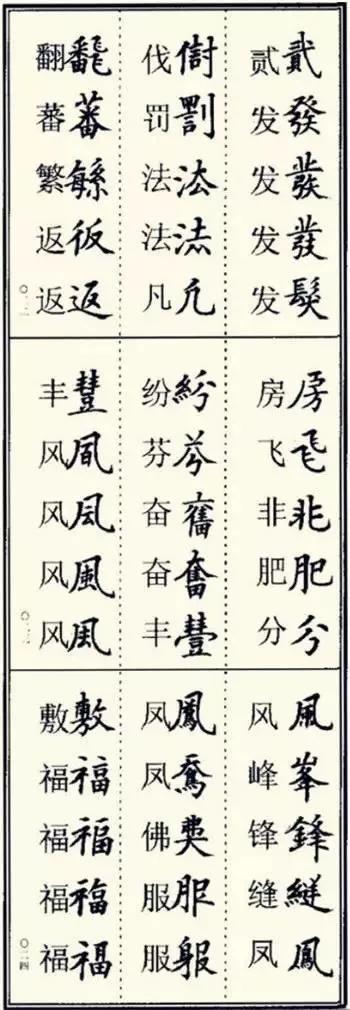 贰貳
发發
发發
发發
发髮
伐
罚罰
法法
法
凡凢
翻飜
蕃蕃
繁緐
返㽹
返返
〇二二
房房
飞飛
非非
肥肥
分分
纷紛
芬芬
奋舊
奋奮
丰豐
丰豐
风凮
风凨
风風
风凬
〇二三
风風
峰峯
锋鋒
缝縫
凤鳳
凤鳳
凤鳯
佛
服服
服
敷敷
福福
福福
福福
福福
〇二四